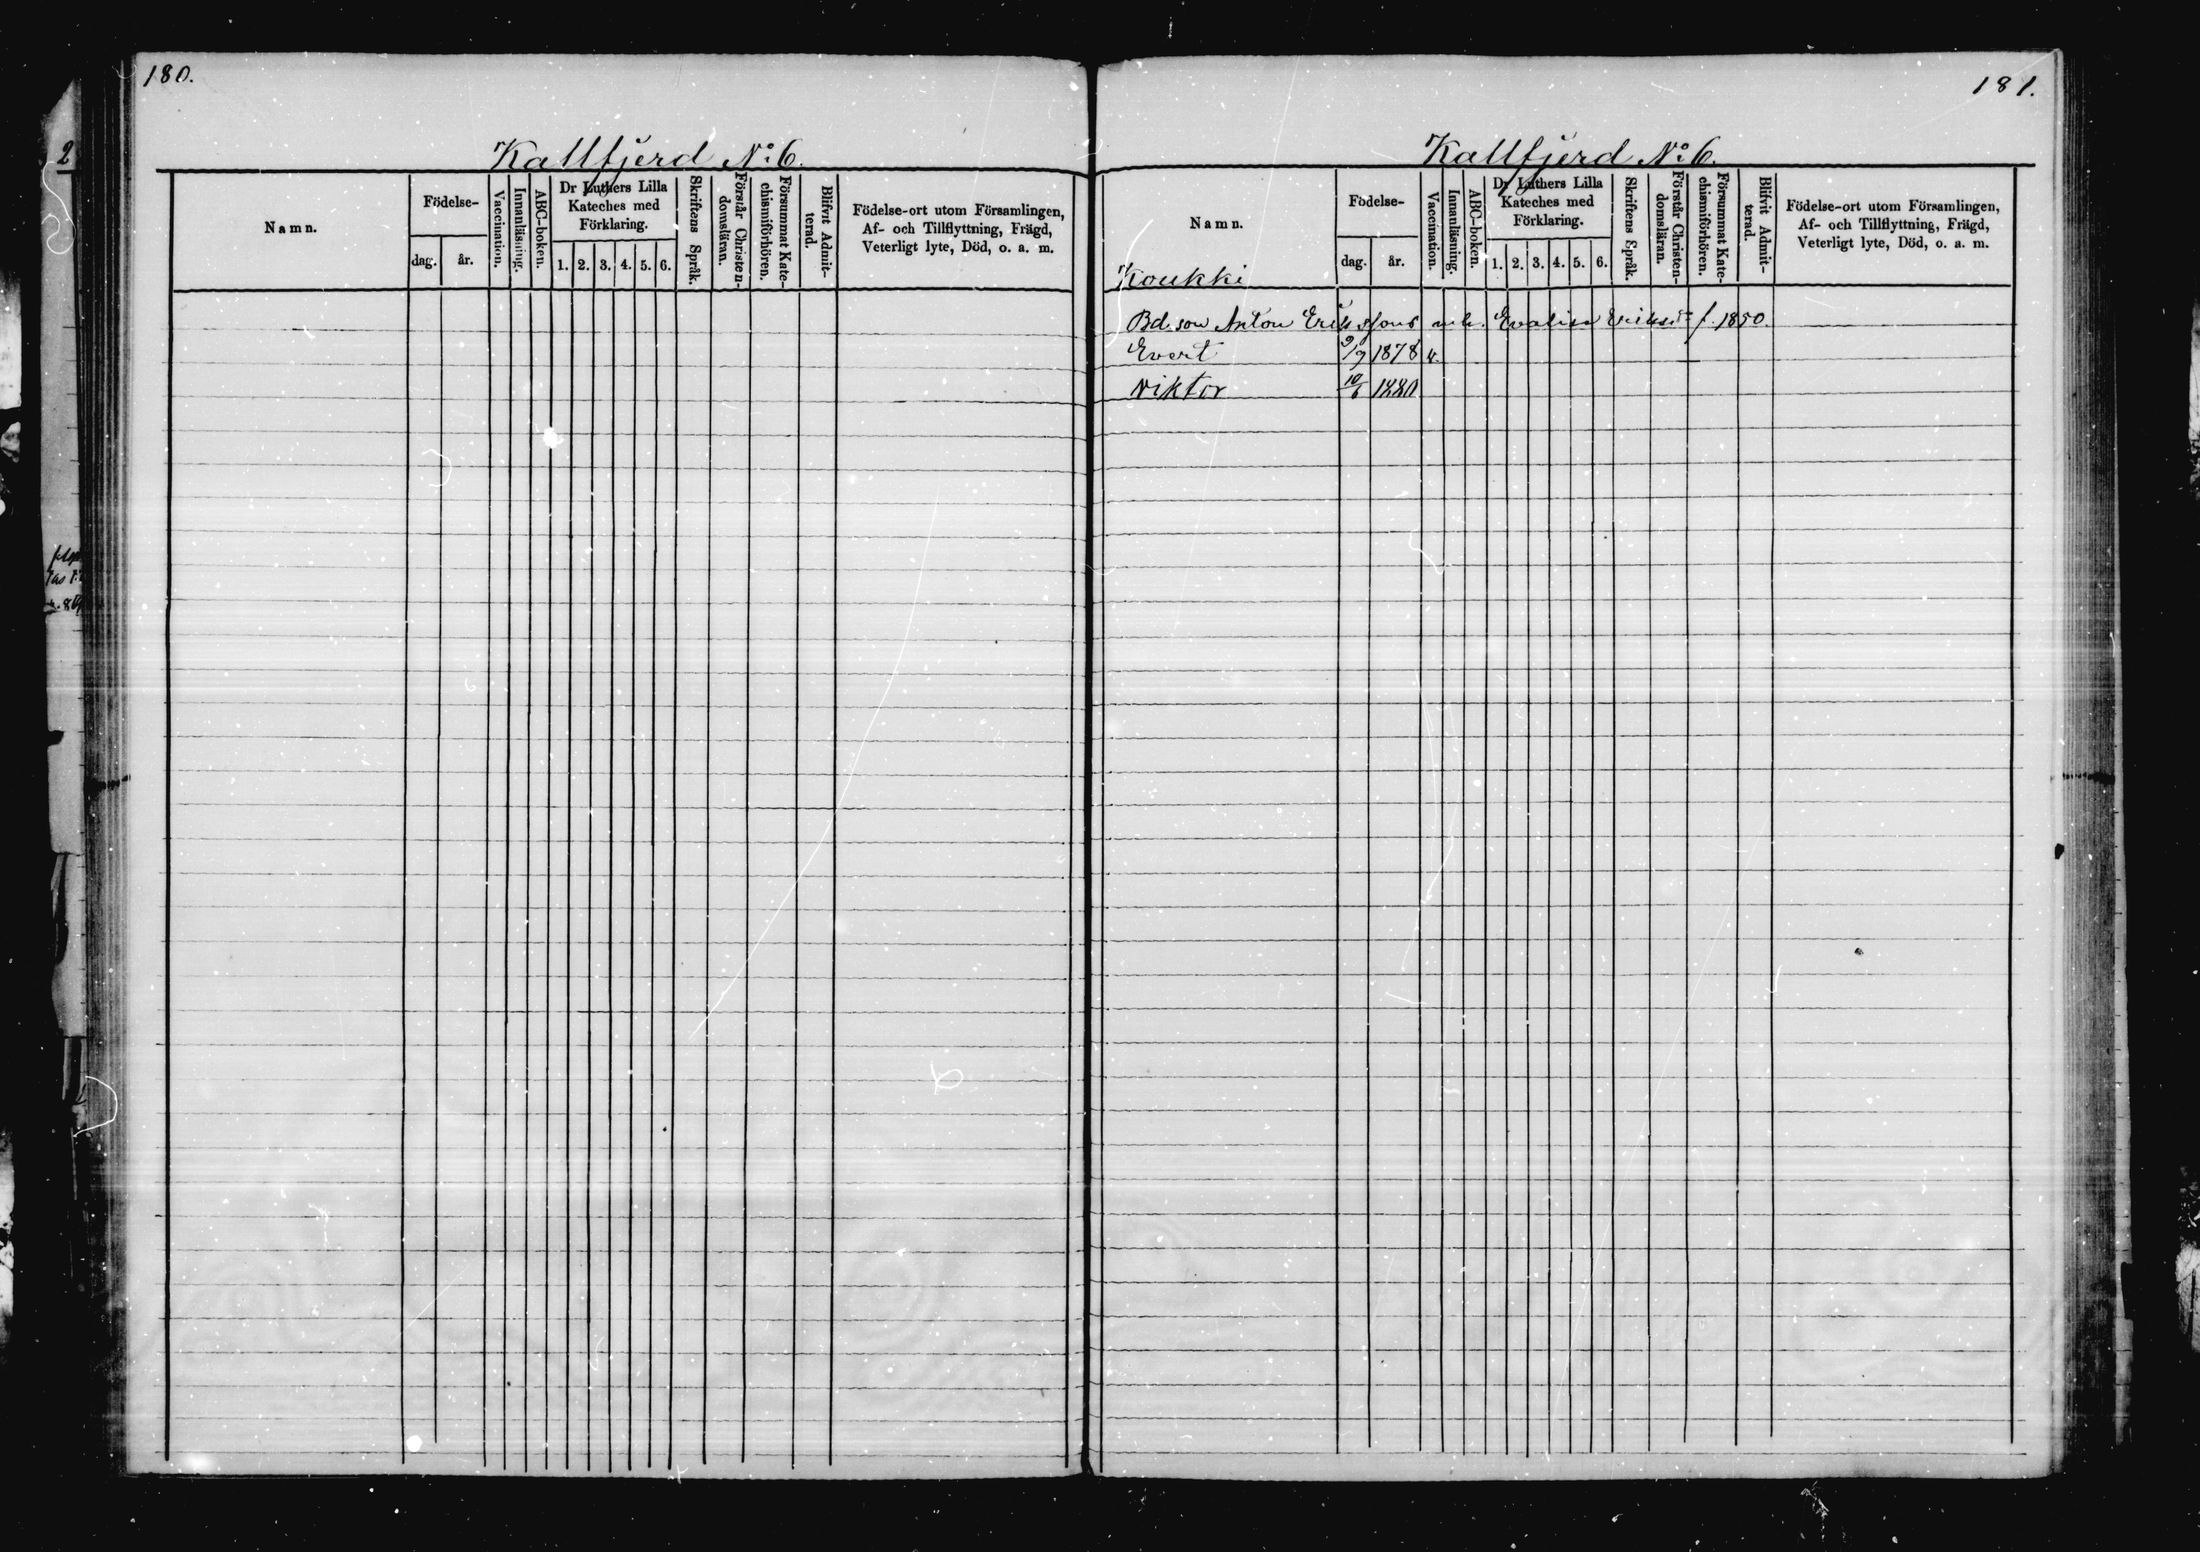 180.
Kallfjerd No 6.
Namn.
Födelse-
dag.
år.
Vaccination.
Innanläsning.
ABC-boken.
Dr Luthers Lilla
Kateches med
Förklaring.
1. 2. 3. 4. 5. 6.
Skriftens Språk.
Förstår Christen-
domsläran.
Försummat Kate-
chismiförhören.
Blifvit Admit-
terad.
Födelse-ort utom Församlingen,
Af- och Tillflyttning, Frägd,
Veterligt lyte, Död, o. a. m.
181.
Kallfjerd No 6.
Namn.
Koukki
Födelse-
dag.
år.
Vaccination.
Innanläsning.
ABC-boken.
Dr Luthers Lilla
Kateches med
Förklaring.
1. 2. 3. 4. 5. 6.
Skriftens Språk.
Förstår Christen-
domsläran.
Försummat Kate-
chismiförhören.
Blifvit Admit-
terad.
Födelse-ort utom Församlingen,
Af- och Tillflyttning, Frägd,
Veterligt lyte, Död, o. a. m.
Bd. son Anton Erikssons enk. Evalisa Eriksdr f. 1850.
Evert 9/9 1878 v.
Viktor 10/6 1880